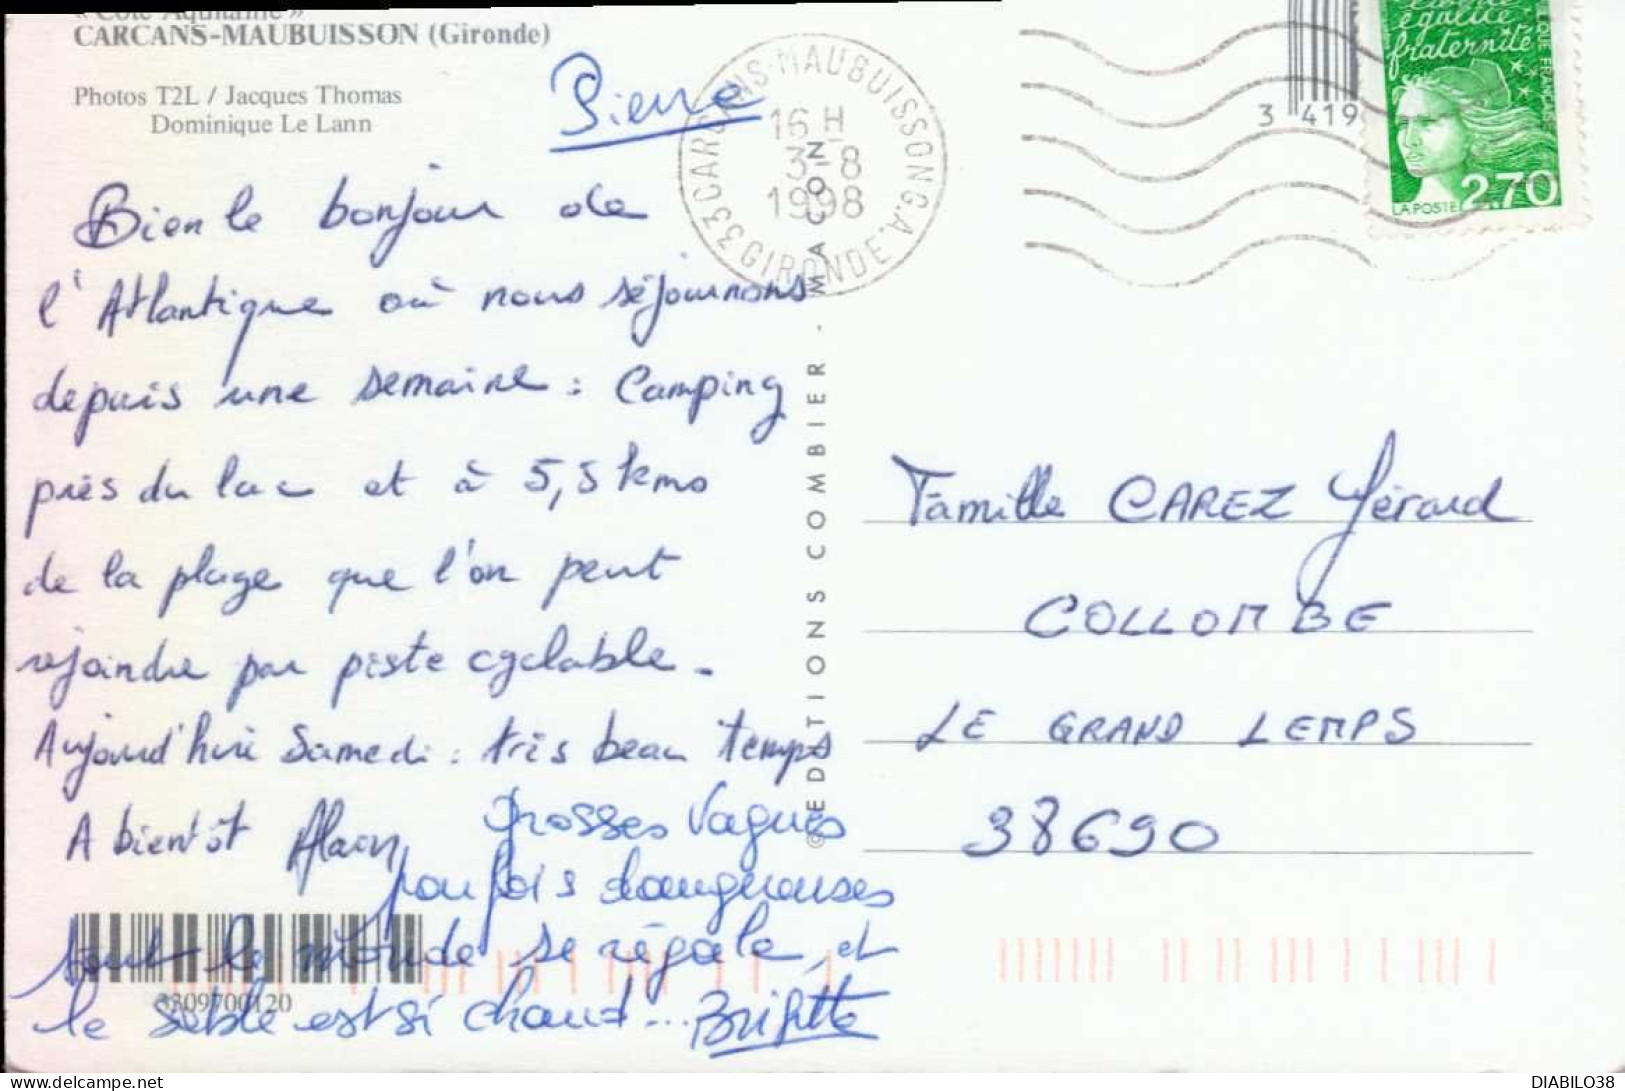 « Côte Aquitaine »
CARCANS-MAUBUISSON (Gironde)
Photos T2L / Jacques Thomas
Dominique Le Lann
Pierre
Bien le bonjour de
l'Atlantique où nous séjournons
depuis une semaine : Camping
près du lac et à 5,5 kms
de la plage que l'on peut
rejoindre par piste cyclable.
Aujourd'hui Samedi : très beau temps
A bientôt Alain
Grosses Vagues
parfois dangereuses
tout le monde se régale, et
le sable est si chaud... Brigitte
3309700120
© EDITIONS COMBIER - MACON
33 CARCANS-MAUBUISSON G.A. GIRONDE
16 H
3-8
1998
3 419
égalité
fraternité
REPUBLIQUE FRANÇAISE
LA POSTE 2,70
Famille CAREZ Gérard
COLLOMBE
LE GRAND LEMPS
38690
DIABILO38